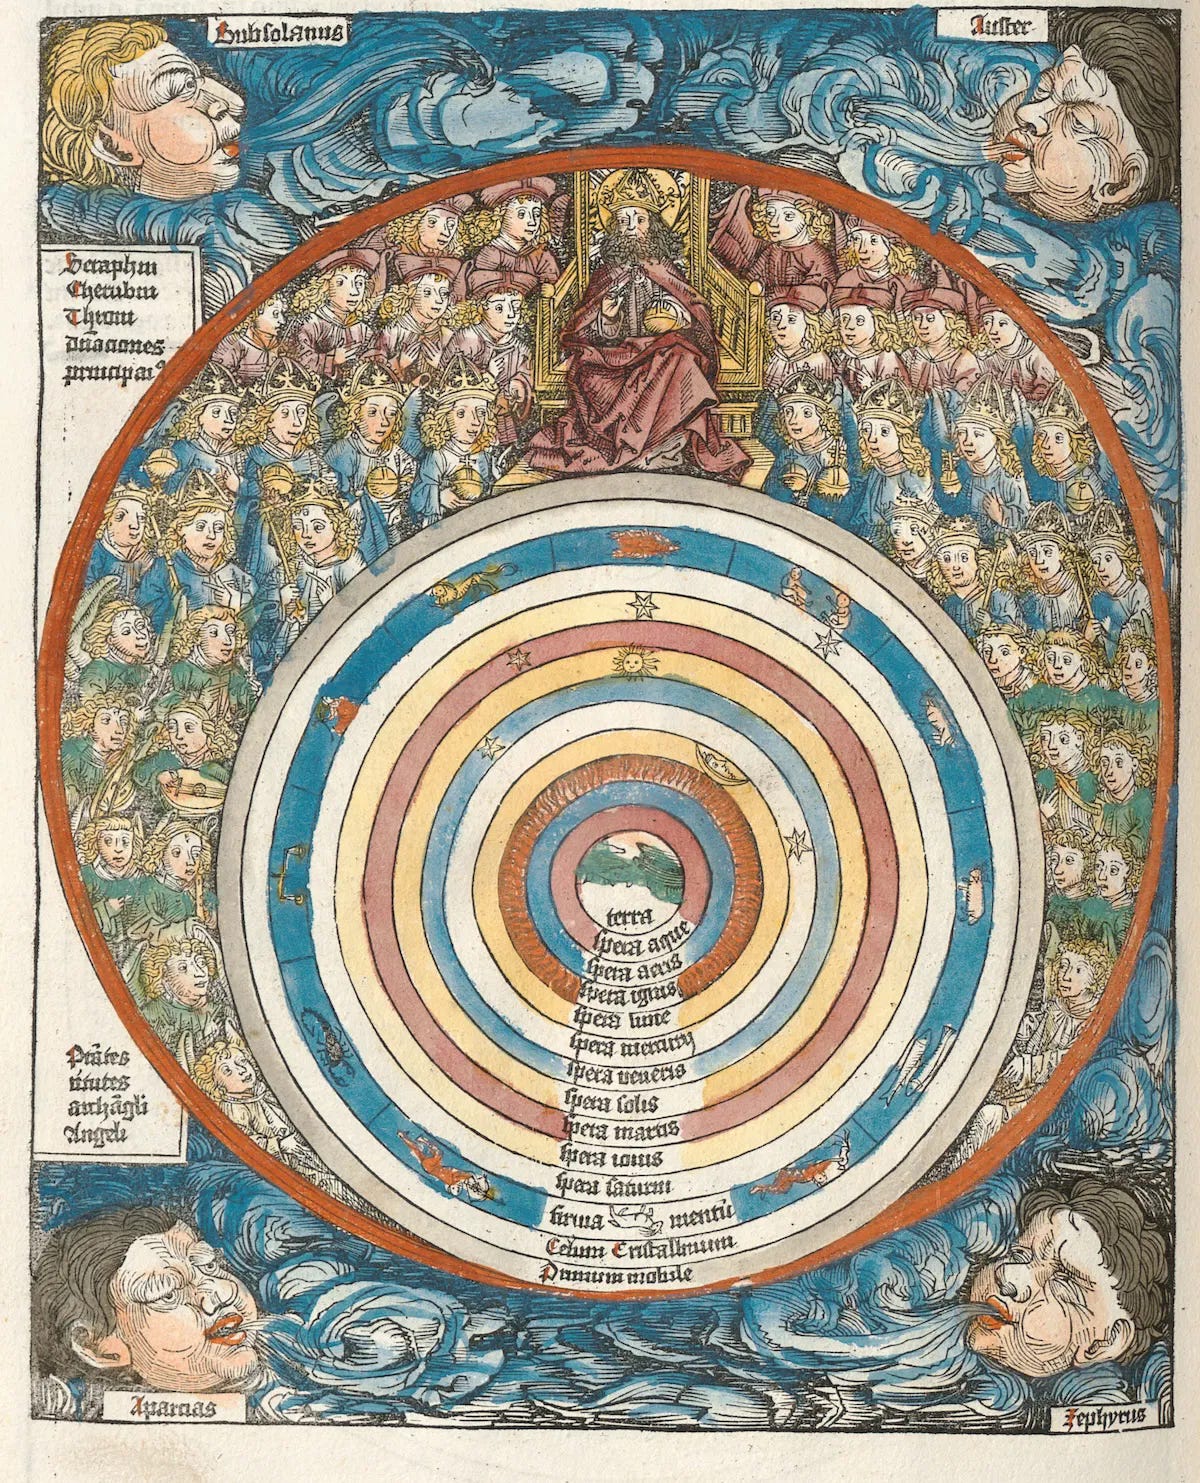 Subsolanus
Auster
Seraphin
Cherubin
Throni
Dn̄aciones
principat⁹
terra
spera aque
spera aeris
spera ignis
spera lune
spera mercurij
spera ueneris
spera solis
spera martis
spera iouis
spera saturni
firma mentū
Celum Cristallinum
Primum mobile
Ptātes
v̄tutes
archāgli
Angeli
Aparcias
Zephyrus